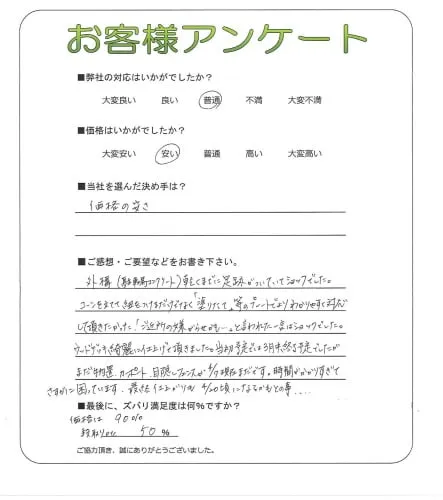 お客様アンケート
■弊社の対応はいかがでしたか?
大変良い 良い 普通 不満 大変不満
■価格はいかがでしたか?
大変安い 安い 普通 高い 大変高い
■当社を選んだ決め手は?
価格の安さ
■ご感想・ご要望などをお書き下さい。
外構(駐車場コンクリート)乾くまでに足跡がついていてショックでした。
コーンを立てて紐をつけるだけでなく「塗りたて」等のプレートでよりわかりやすく対応
して頂きたかった!「ご近所の嫌がらせかも…」と言われた一言はショックでした。
ウッドデッキ綺麗に仕上げて頂きました。当初予定では3月末終了予定でしたが
まだ物置、カーポート、目隠しフェンスが4/7現在まだです。時間がかかりすぎて
さすがに困っています。最終仕上がりも4/20頃になるかもとの事....
■最後に、ズバリ満足度は何%ですか?
価格は 90%
段取りは 50%
ご協力頂き、誠にありがとうございました。